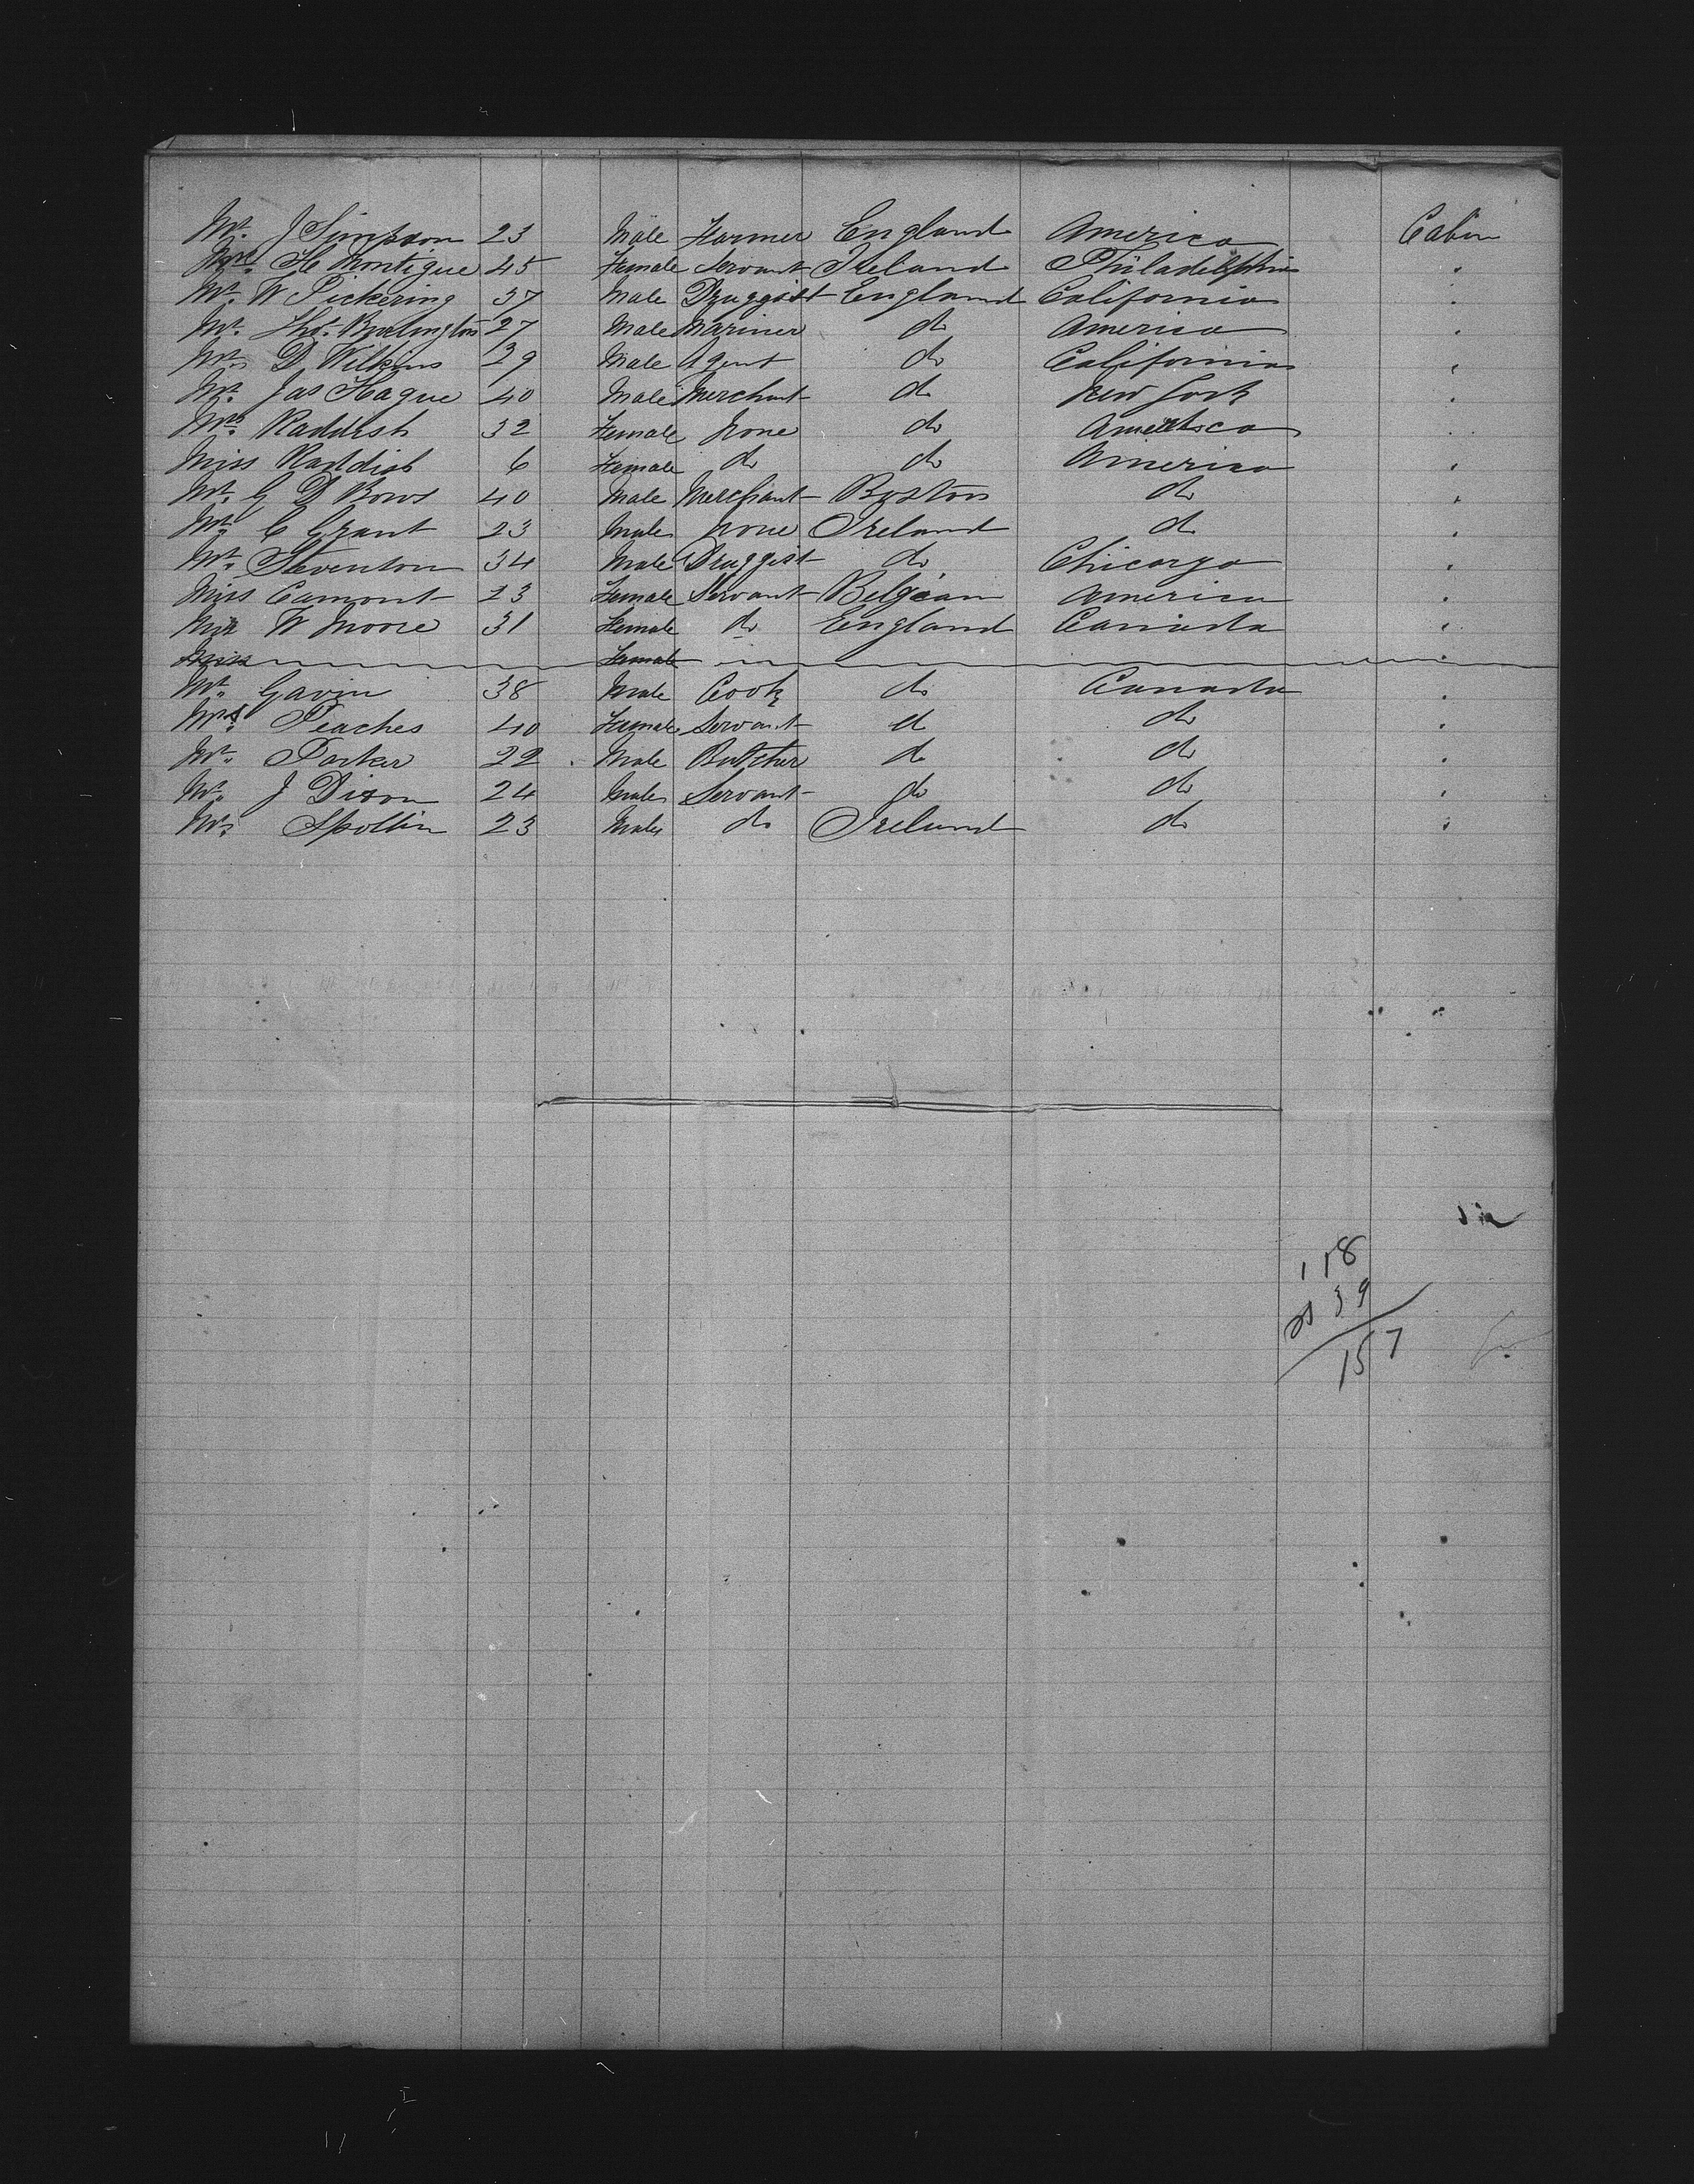 Mr. J Simpson 23 Male Farmer England America Cabin
Mrs. H Montigue 45 Female Servant Ireland Philadelphia "
Mr. W Pickering 37 Male Druggist England California "
Mr. Thos. 27 Male Mariner do America "
Mr. D Wilkins 39 Male Agent do California "
Mr. Jas Hague 40 Male Merchant do New York "
Mrs. Raddish 32 Female None do America "
Miss Raddish 6 Female do do America "
Mr. G D 40 Male Merchant Boston do "
Mr. C Grant 23 Male None Ireland do "
Mr. Steventon 34 Male Druggist do Chicargo "
Miss Camont 23 Female Servant Belgian America "
W Moore 31 Female do England Canada "
Miss Female "
Mr. Gavin 38 Male Cook do Canada "
Mrs. Peaches 40 Female Servant do do "
Mr. Parker 22 Male Butcher do do "
Mr. J Dixon 24 Male Servant do do "
Mr. Spollin 23 Male do Ireland do "
118
39
157